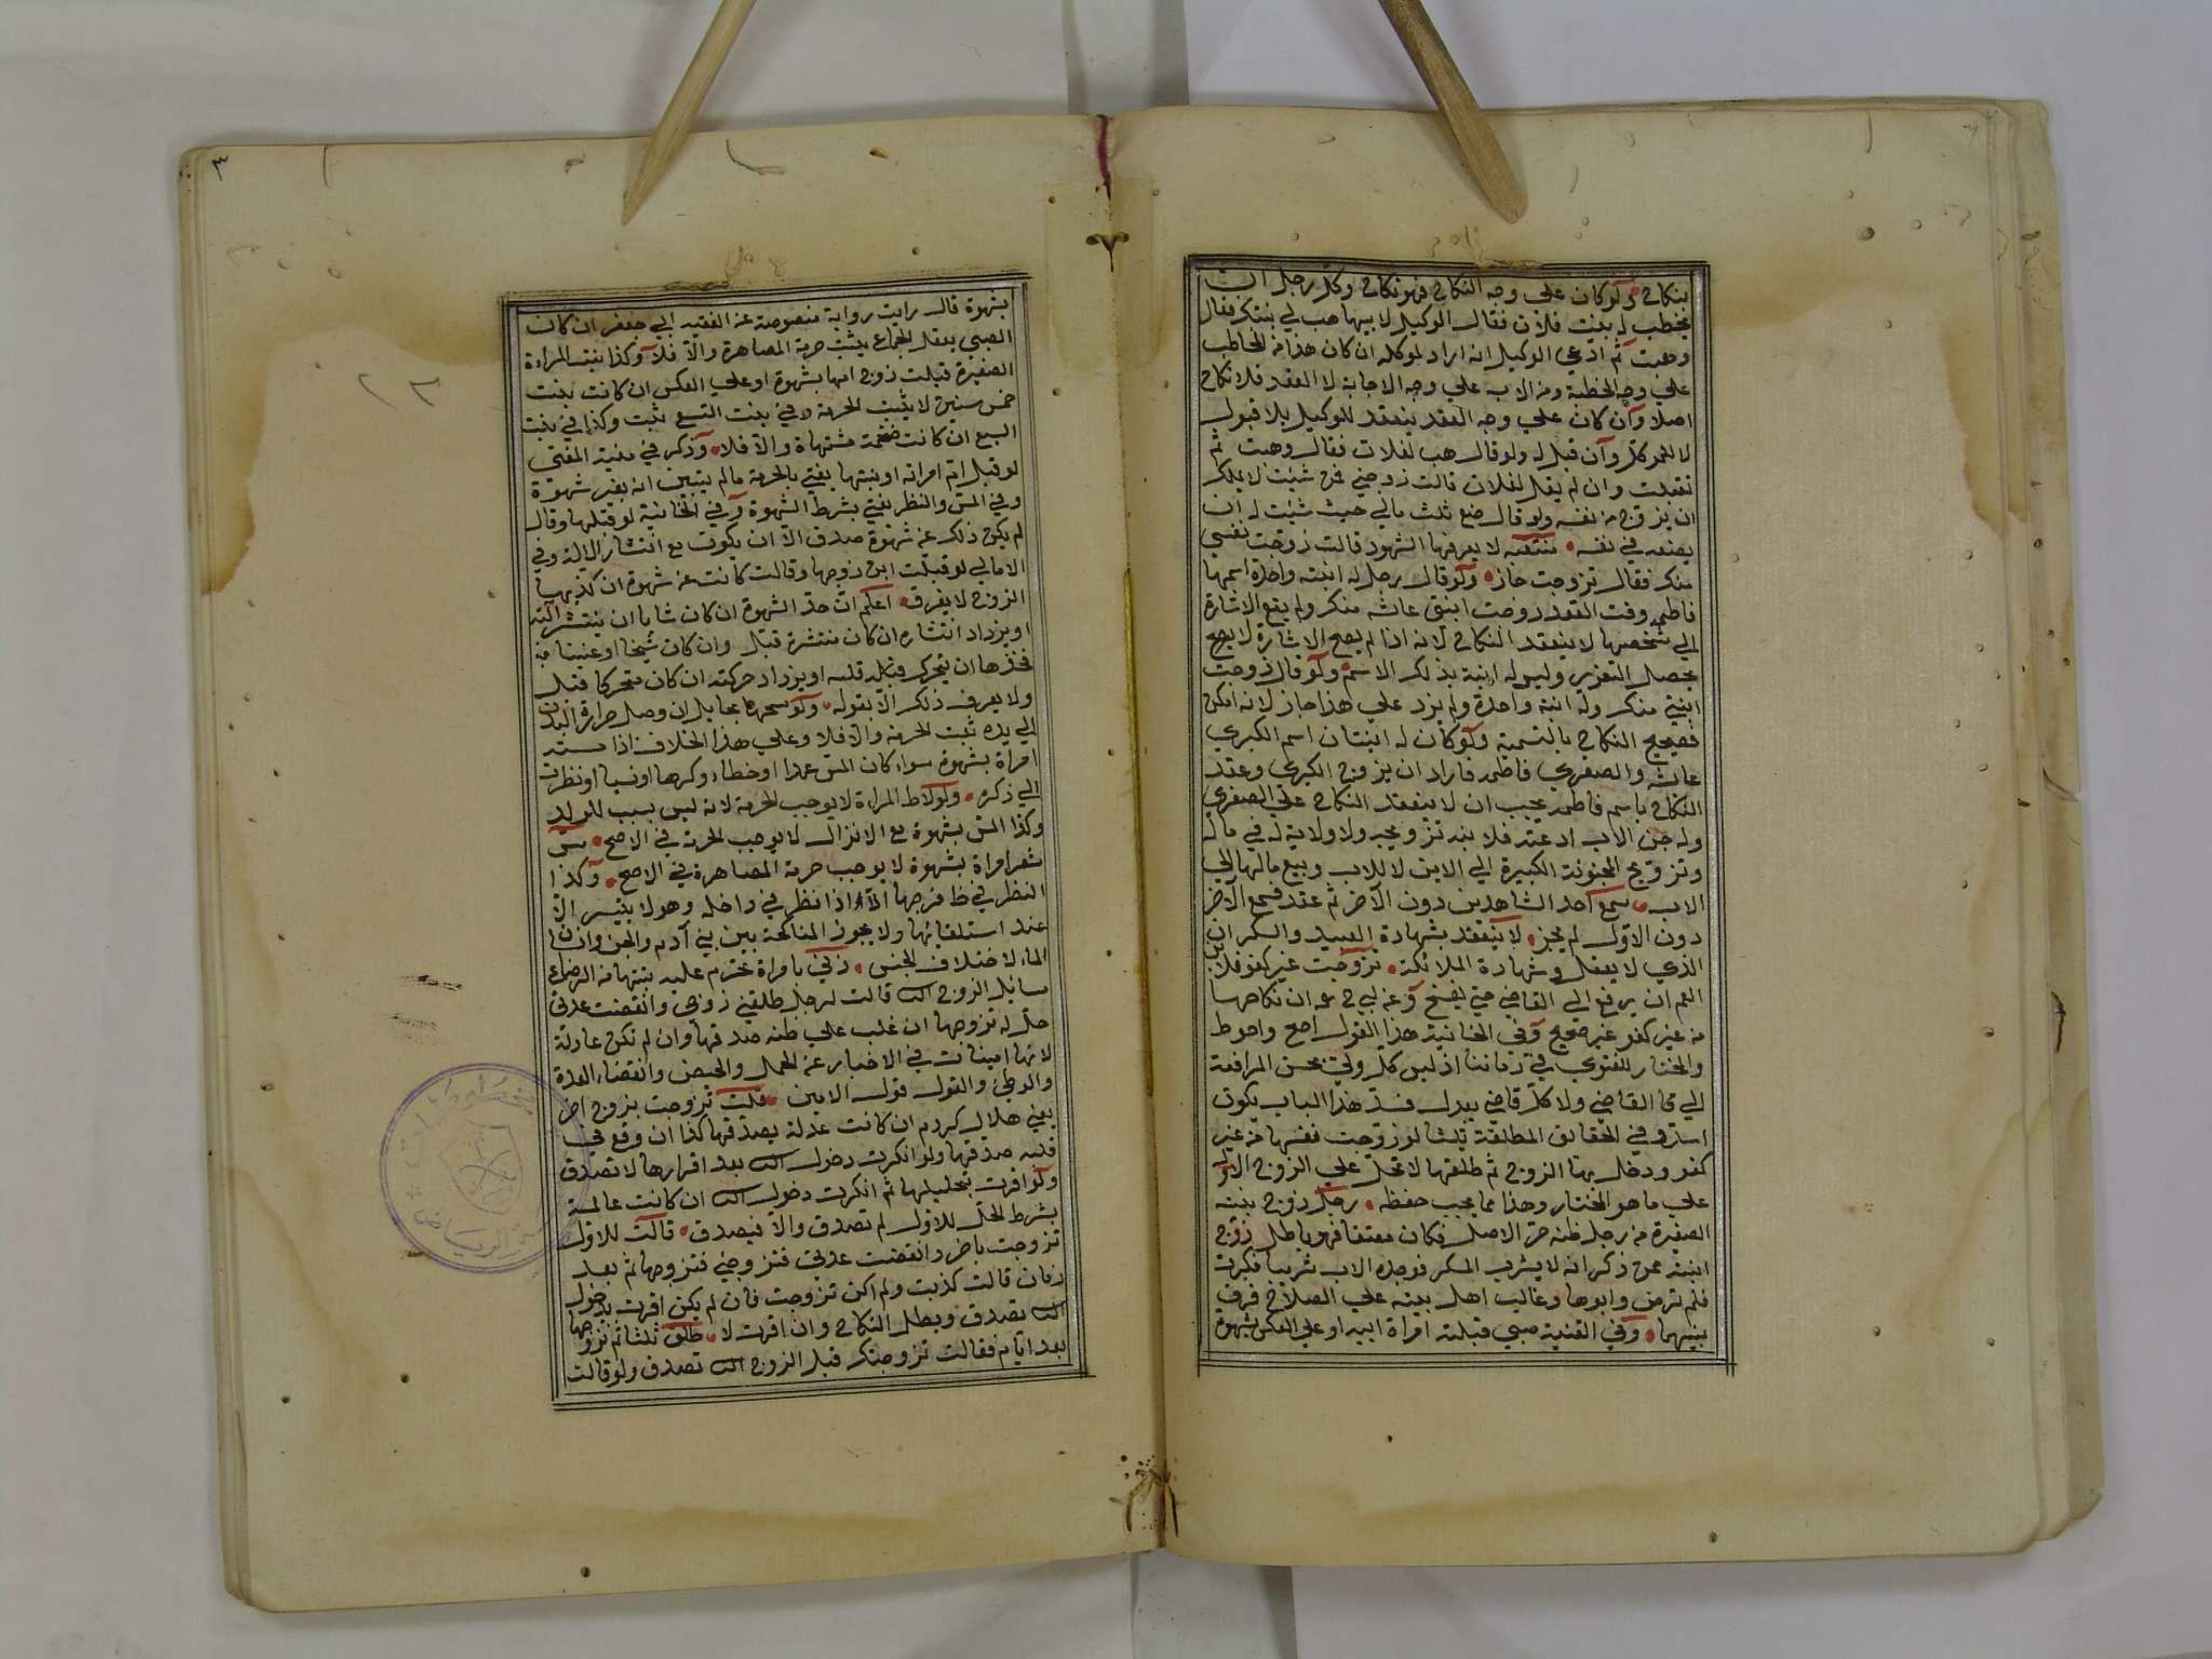 بنكاح ولو كان علي وجه النكاح فهو نكاح وكل رجل ان
يخطب له بنت فلان فقال الوكيل لابيها هب لي بنتك فقال
وهبت ثم ادعي الوكيل انه اراد لموكله ان كان هذا من المخاطب
علي وجه الخطبة ومن الاب علي وجه الاجابة لا العقد فلا نكاح
اصلا وان كان علي وجه العقد ينعقد للوكيل بلا قبول
لا للموكل وان قبل له ولو قال هب لفلان فقال وهبت ثم
تقبلت وان لم يقل لفلان قالت زوجني ممن شئت لا يملك
ان يزوج من نفسه ولو قال ضع ثلث مالي حيث شئت له ان
يضعه في نفسه منتقبه لا يعرفها الشهود قالت زوجت نفسي
منك فقال تزوجت جاز ولو قال رجل له ابنة واحدة اسمها
فاطمه وقت العقد زوجت ابنتي عائشه منك ولم يقع الاشارة
الي شخصها لا ينعقد النكاح لانه اذا لم يصح الاشارة لا يصح
يحصل التعزير وليس له ابنة بذلك الاسم ولو قال زوجت
ابنتي منك وله ابنة واحدة ولم يزد علي هذا جاز لانه امكن
تصحيح النكاح بالتسمية ولو كان له ابنتان اسم الكبري
عائشه والصغري فاطمه فاراد ان يزوج الكبري وعقد
النكاح باسم فاطمه يجب ان لا ينعقد النكاح علي الصغري
وله جن الاب او عته فلا بنه تزويجه ولا ولاية له في ماله
وتزويج المجنونة الكبيرة الي الابن لا للاب وبيع مالها الي
الاب سمع احد الشاهدين دون الآخر ثم عقد فسمع الآخر
دون الاول لم يجز لا ينعقد بشهادة العبيد والسكران
الذي لا يعقل وشهادة الملائكة تزوجت غير كفو فلابن
العم ان يرفع الي القاضي حتي يفسخ وعن ابي ح عه ان نكاحها
من غير كفو غير صحيح وفي الخانية هذا القول اصح واحوط
والمختار للفتوي في زماننا اذ ليس كل ولي يحسن المرافعة
الي القاضي ولا كل قاض يعدل فسد هذا الباب يكون
استر وفي الحقايق المطلقة ثلثا لو زوجت نفسها من غير
كفو ودخل بها الزوج ثم طلقها لا تحل علي الزوج الاول
علي ما هو المختار وهذا مما يجب حفظه رجل زوج بنته
الصغيرة من رجل ظنه حر الاصل فكان معتقا فهو باطل زوج
ابنته ممن ذكر انه لا يشرب المسكر فوجده الاب شريبا فكبرت
فلم ترض وابوها وغالب اهل بيته علي الصلاح فرق
بينهما وفي القنية صبي قبلته امراة ابيه او علي العكس بشهوة
٣
بشهوة قال رايت رواية منصوصة عن الفقيه ابي جعفر ان كان
الصبي يعقل الجماع يثبت حرمة المصاهرة والا فلا وكذا بنت المراءة
الصغيرة قبلت زوج امها بشهوة او علي العكس ان كانت بنت
خمس سنين لا يثبت الحرمة وفي بنت التسع ثبت وكذا في بنت
السبع ان كانت ضخمة مشتهاة والا فلا وذكر في منية المفتي
لو قبل ام امراته او بنتها يفتي بالحرمة ما لم يتبين انه بغير شهوة
وفي المس والنظر يفتي بشرط الشهوة وفي الخانية لو قبلها وقال
لم يكن ذلك عن شهوة صدق الا ان يكون مع انتشار الالة وفي
الامالي لو قبلت ابن زوجها وقالت كانت عن شهوة ان كذبها
الزوج لا يفرق اعلم ان حد الشهوة ان كان شابا ان ينتشر آلته
او يزداد انتشاره ان كان منتشرة قبل وان كان شيخا او عنينا
ان يتحرك قلبه او يزداد حركته ان كان متحركا قبل
ولا يعرف ذلك الا بقوله ولو مسها بحايل ان وصل حرارة البدن
الي يده ثبت الحرمة والا فلا وعلي هذا الخلاف اذا مسته
امراة بشهوة سواء كان المس عمدا او خطاء وكرها او نسيا او نظرت
الي ذكره ولو لاط المراءة لا يوجب الحرمة لانه ليس بسبب للولد
وكذا المس بشهوة مع الانزال لا يوجب الحرمة في الاصح مس
شعر امراة بشهوة لا يوجب حرمة المصاهرة في الاصح وكذا
النظر في ظ فرجها الا اذا نظر في داخله وهو لا يتيسر الا
عند استلقائها ولا يجوز المناكحة بين بني آدم والجن وانسان
الماء لاختلاف الجنس زني بامراة تحرم عليه بنتها من الرضاع
مسائل الزوج الثا قالت لرجل طلقني زوجي وانقضت عدتي
حل له تزوجها ان غلب علي ظنه صدقها وان لم تكن عادلة
لانها امينات في الاخبار عن الحمل والحيض وانقضاء العدة
والوطئ والقول قول الامين قلت تزوجت بزوج اخر
يعني حلال كردم ان كانت عدلة يصدقها كذا ان وقع في
قلبه صدقها ولو انكرت دخول الثا بعد اقرارها لا تصدق
ولو اقرت بتحليلها ثم انكرت دخول الثا ان كانت عالمة
بشرط الحل للاول لم تصدق والا فيصدق قالت للاول
تزوجت باخر وانقضت عدتي فتزوجني فتزوجها ثم بعد
زمان قالت كذبت ولم اكن تزوجت فان لم يكن اقرت بدخول
الثا تصدق ويبطل النكاح وان اقرت لا طلق ثلثا ثم تزوجها
بعد ايام فقالت تزوجتك قبل الزوج الثا تصدق ولو قالت